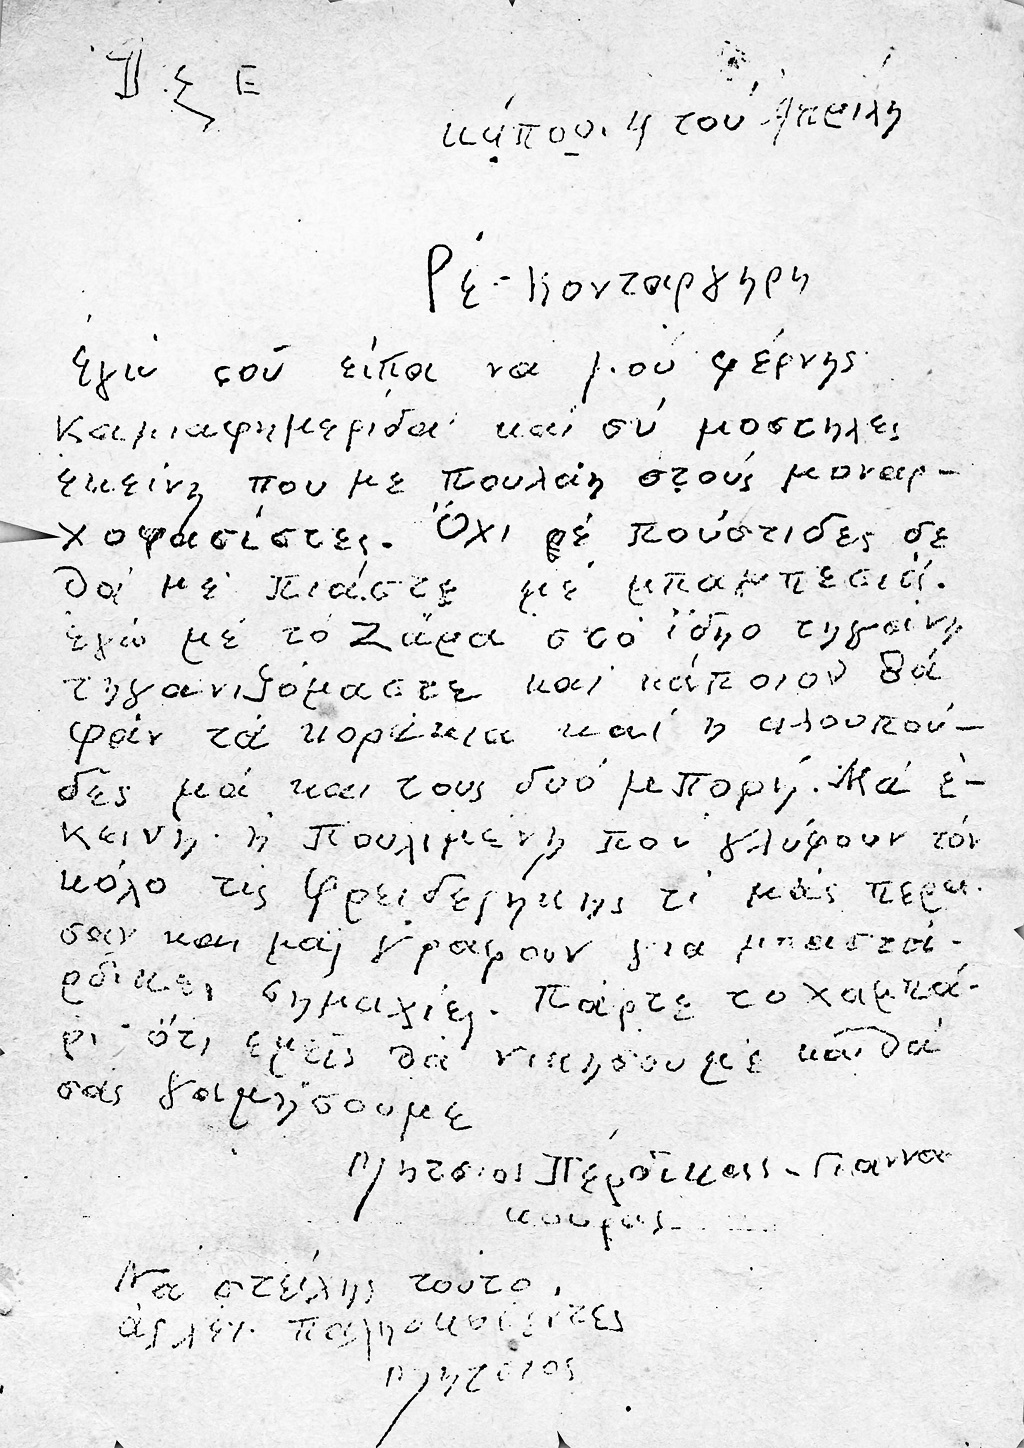 Δ.Σ Ε
κάπου. 4 τού Απρίλη
Ρέ - Κονταργηρη
Εγώ σού είπα να μού φέρνης
Καμιαφημερίδα καί σύ μοστηλες
εκείνη που με πουλάη στούς μοναρ-
χοφασίστες. Όχι ρέ πούστιδες δε
θά μέ πιάστε μέ μπαμπεσιά.
Εγώ μέ τό Ζάρα στό ίδηο τηγάνη
τηγανιζόμαστε καί κάποιον θά
φάν τά κοράκια καί η αλουπού-
δες μά και τους δυό μπορή. Μά ε-
κεινη. ή Πουλιμένη που γλύφουν τόν
κόλο τις Φρειδερήκης τί μάς περα-
σαν και μάς γραφουν για μπαστά-
ρδικες σημαχίες. Πάρτε το χαμπά-
ρι ότι εμείς θά νικησουμε καί θά
σάς γαμήσουμε
Μητσιος Πέρδικας - Γιαννα
κουρας
Να στείλης τούτο,
παληο
Μητσιος